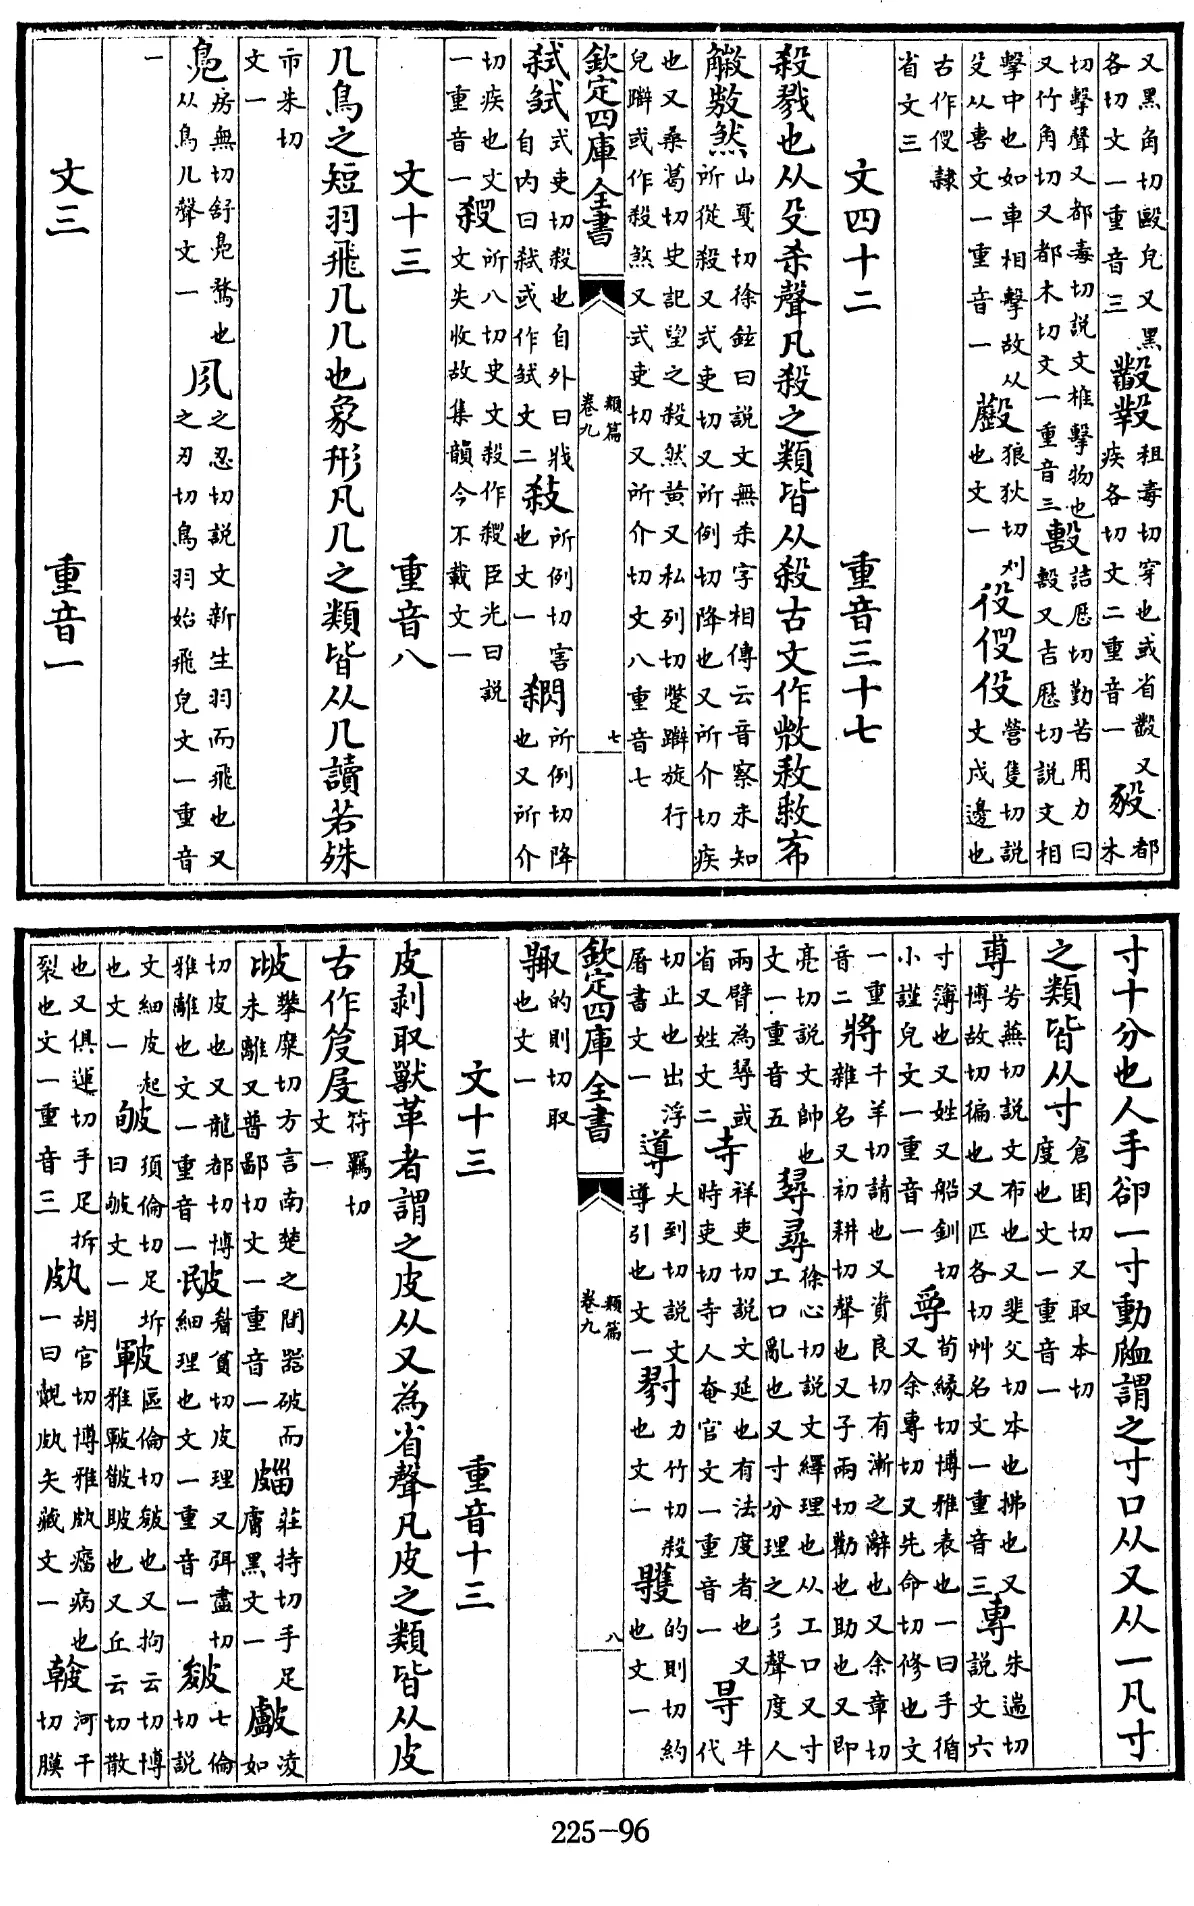 又黑角切毆皃又黑各切文一重音三 粗毒切穿也或省又疾各切文二重音一豛都木
切擊聲又都毒切説文椎擊物也又竹角切又都木切文一重音三毄詰厯切勤苦用力曰毄又吉厯切説文相
擊中也如車相擊故从殳从軎文一重音一 狼狄切刋也文一役伇 營隻切説文戍邊也
古作伇隸省文三
文四十二 重音三十七
殺戮也从殳杀聲凡殺之類皆从殺古文作 布
煞山戛切徐鉉曰説文無杀字相傳云音察未知所從殺又式吏切又所例切降也又所介切疾
也又桑葛切史記望之殺然黄又私列切蹩躃旋行皃躃或作殺煞又式吏切又所介切文八重音七
欽定四庫全書 類篇 卷九 七
弑 式吏切殺也自外曰戕自内曰弑或作 文二 所例切害也文一 所例切降也又所介
切疾也文一重音一 所八切史文殺作 臣光曰説文失收故集韻今不載文一
文十三 重音八
几鳥之短羽飛几几也象形凡几之類皆从几讀若殊
市朱切文一
鳬房無切舒鳬鶩也从鳥几聲文一 之忍切説文新生羽而飛也又之刃切鳥羽始飛皃文一重音
一
文三 重音一
寸十分也人手卻一寸動䘑謂之寸口从又从一凡寸
之類皆从寸倉困切又取本切度也文一重音一
尃芳蕪切説文布也又斐父切本也拂也又博故切徧也又匹各切艸名文一重音三專朱遄切説文六
寸簿也又姓又船釧切小謹皃文一重音一 荀緣切博雅表也一曰手循又余專切又先命切修也文
一重音二將千羊切請也又資良切有漸之辭也又余章切雜名又初耕切聲也又子兩切勸也助也又即
亮切説文帥也文一重音五 尋徐心切説文繹理也从工口又寸工口亂也又寸分理之彡聲度人
兩臂為尋或省又姓文二寺祥吏切説文廷也有法度者也又時吏切寺人奄官文一重音一㝵牛代
切止也出浮屠書文一導大到切説文導引也文一 力竹切殺也文一 的則切約也文一
欽定四庫全書 類篇 卷九 八
的則切取也文一
文十三 重音十三
皮剥取獸革者謂之皮从又為省聲凡皮之類皆从皮
古作 符羈切文一
攀糜切方言南楚之間器破而未離又普鄙切文一重音一 莊持切手足膚黑文一 凌如
切皮也又龍都切博雅離也文一重音一 眉貧切皮理又弭盡切細理也文一重音一皴七倫切説
文細皮起也文一 須倫切足坼曰 文一皸區倫切皴也又拘云切博雅皸 也又丘云切散
也又俱運切手足拆裂也文一重音三 胡官切博雅 病也一曰 矢藏文一 河干切膜
225-96